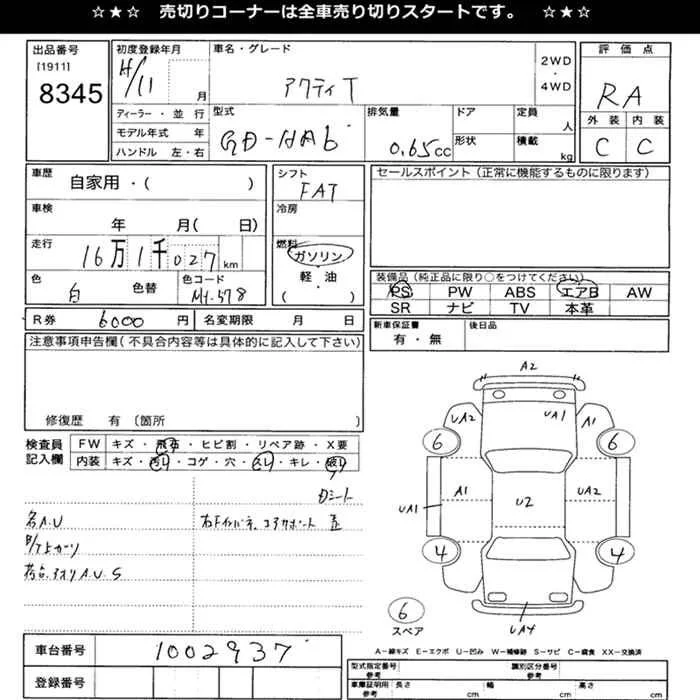 ☆★☆ 売切りコーナーは全車売り切りスタートです。 ☆★☆
出品番号
[1911]
8345
初度登録年月
H/11 月
車名・グレード
アクティ T
2WD
・
4WD
評価点
RA
外装 内装
C C
ディーラー・並行
モデル年式 年
ハンドル 左・右
型式
GD-HA6
排気量
0.65cc
ドア
形状
定員
人
積載
kg
車歴
自家用・( )
車検
年 月( 日)
走行
16万1千027km
色
白 色替
色コード
シフト
FAT
冷房
燃料
ガソリン
軽・油
( )
セールスポイント(正常に機能するものに限ります)
装備品(純正品に限り○をつけてください)
PS PW ABS エアB AW
SR ナビ TV 本革
R券 6000 円 名変期限 月 日
新車保証書
有・無
後日品
注意事項申告欄(不具合内容等は具体的に記入して下さい)
修復歴 有 〔箇所 〕
検査員
記入欄
FW キズ・飛石・ヒビ割・リペア跡・X要
内装 キズ・汚レ・コゲ・穴・スレ・キレ・破レ
シート
各A.U
A2
UA2
UA1
A1
6
6
UA1
A1
U2
UA2
4
4
6
スペア
UA4
A−線キズ E−エクボ U−凹み W−補修跡 S−サビ C−腐食 XX−交換済
車台番号
1002937
登録番号
型式指定番号
参考
識別区分番号
参考
車庫証明用
参考
長さ cm 幅 cm 高さ cm